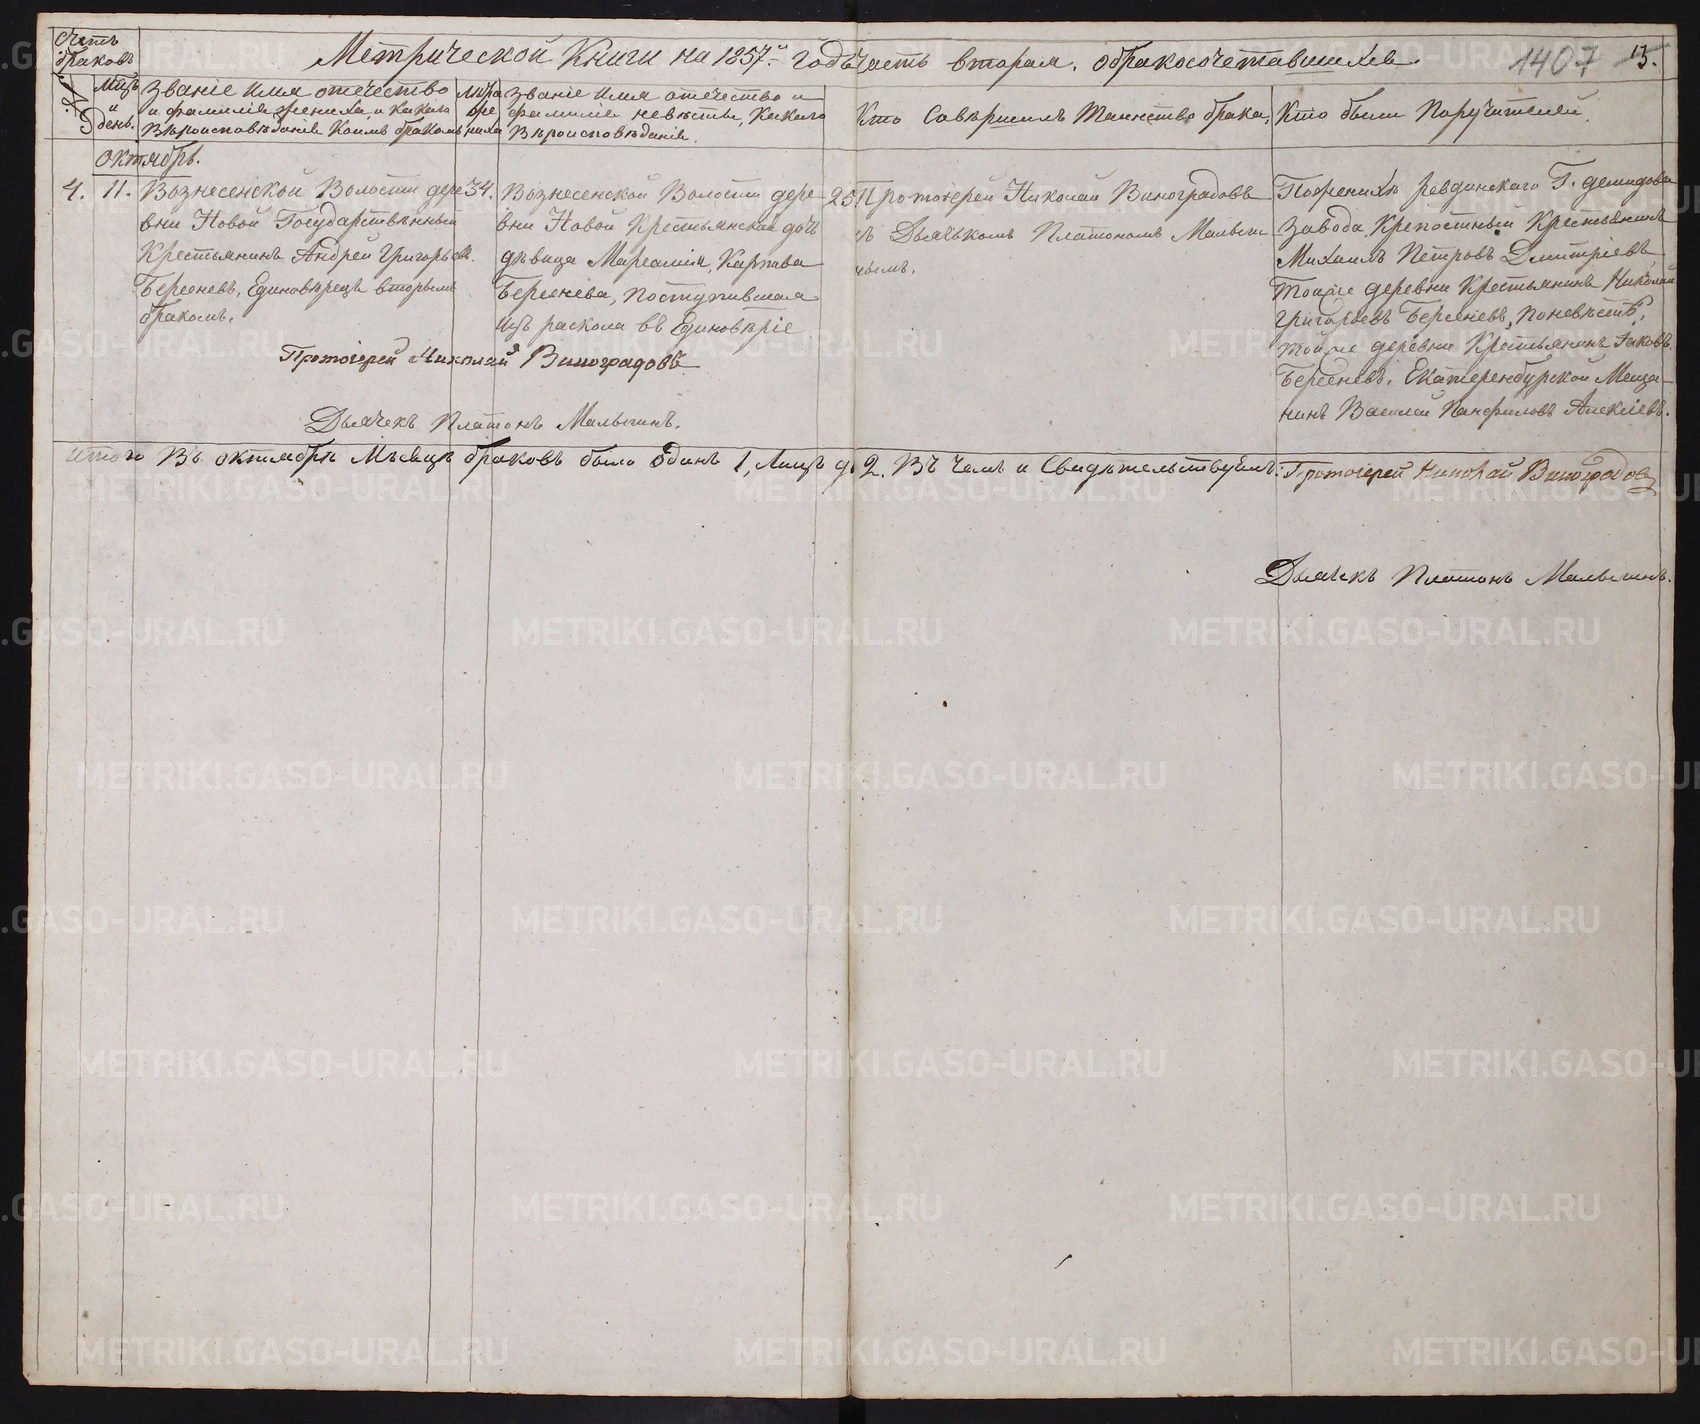 Счетъ браковъ
Метрической Книги на 1857й годъ Часть вторая. обракосочетавшихся.
1407
13.
№
Мцъ и день.
Званіе имя отечество и фамилія жениха, и какого Вѣроисповѣданія Коимъ бракомъ
Лѣта жениха
Званіе имя отечество и фамилія невѣсты, Какого Вѣроисповѣданія.
Кто Савѣршилъ Таинство брака,
Кто были Поручителей.
октябрь.
4. 11.
Вознесенской Волости дере
вни Новой Государственный
Крестьянинъ Андрей Григорьевъ
Берсеневъ, Единовѣрецъ вторымъ
бракомъ.
34.
Вознесенской Волости дере
вни Новой Крестьянская дочь
дѣвица Мареамія, Карпова
Берсенева, поступившая
изъ раскола въ Единовѣріе
25
Протоіерей Николай Виноградовъ
съ Дьячькомъ Платономъ Малыги
нымъ.
Пожениху ревдинскаго Г. демидова
завода Крепостный Крестьянинъ
Михаилъ Петровъ Дмитріевъ
тойже деревни Крестьянинъ Николай
григорьевъ Берсеневъ, поневѣстѣ,
тойже деревни Крестьянинъ Іаковъ
Берсеневъ. Екатеренбурской Меща
нинъ Василей Панфиловъ Алексіевъ.
Протоіерей Николай Виноградовъ
Дьячекъ Платонъ Малыгинъ.
итого Въ октябрѣ Мѣсяцѣ браковъ было одинъ 1, Лицъ 2. Въ чемъ и Свидѣтельствуемъ: Протоіерей Николай Виноградовъ
Дьячекъ Платонъ Малыгинъ.
METRIKI.GASO-URAL.RU